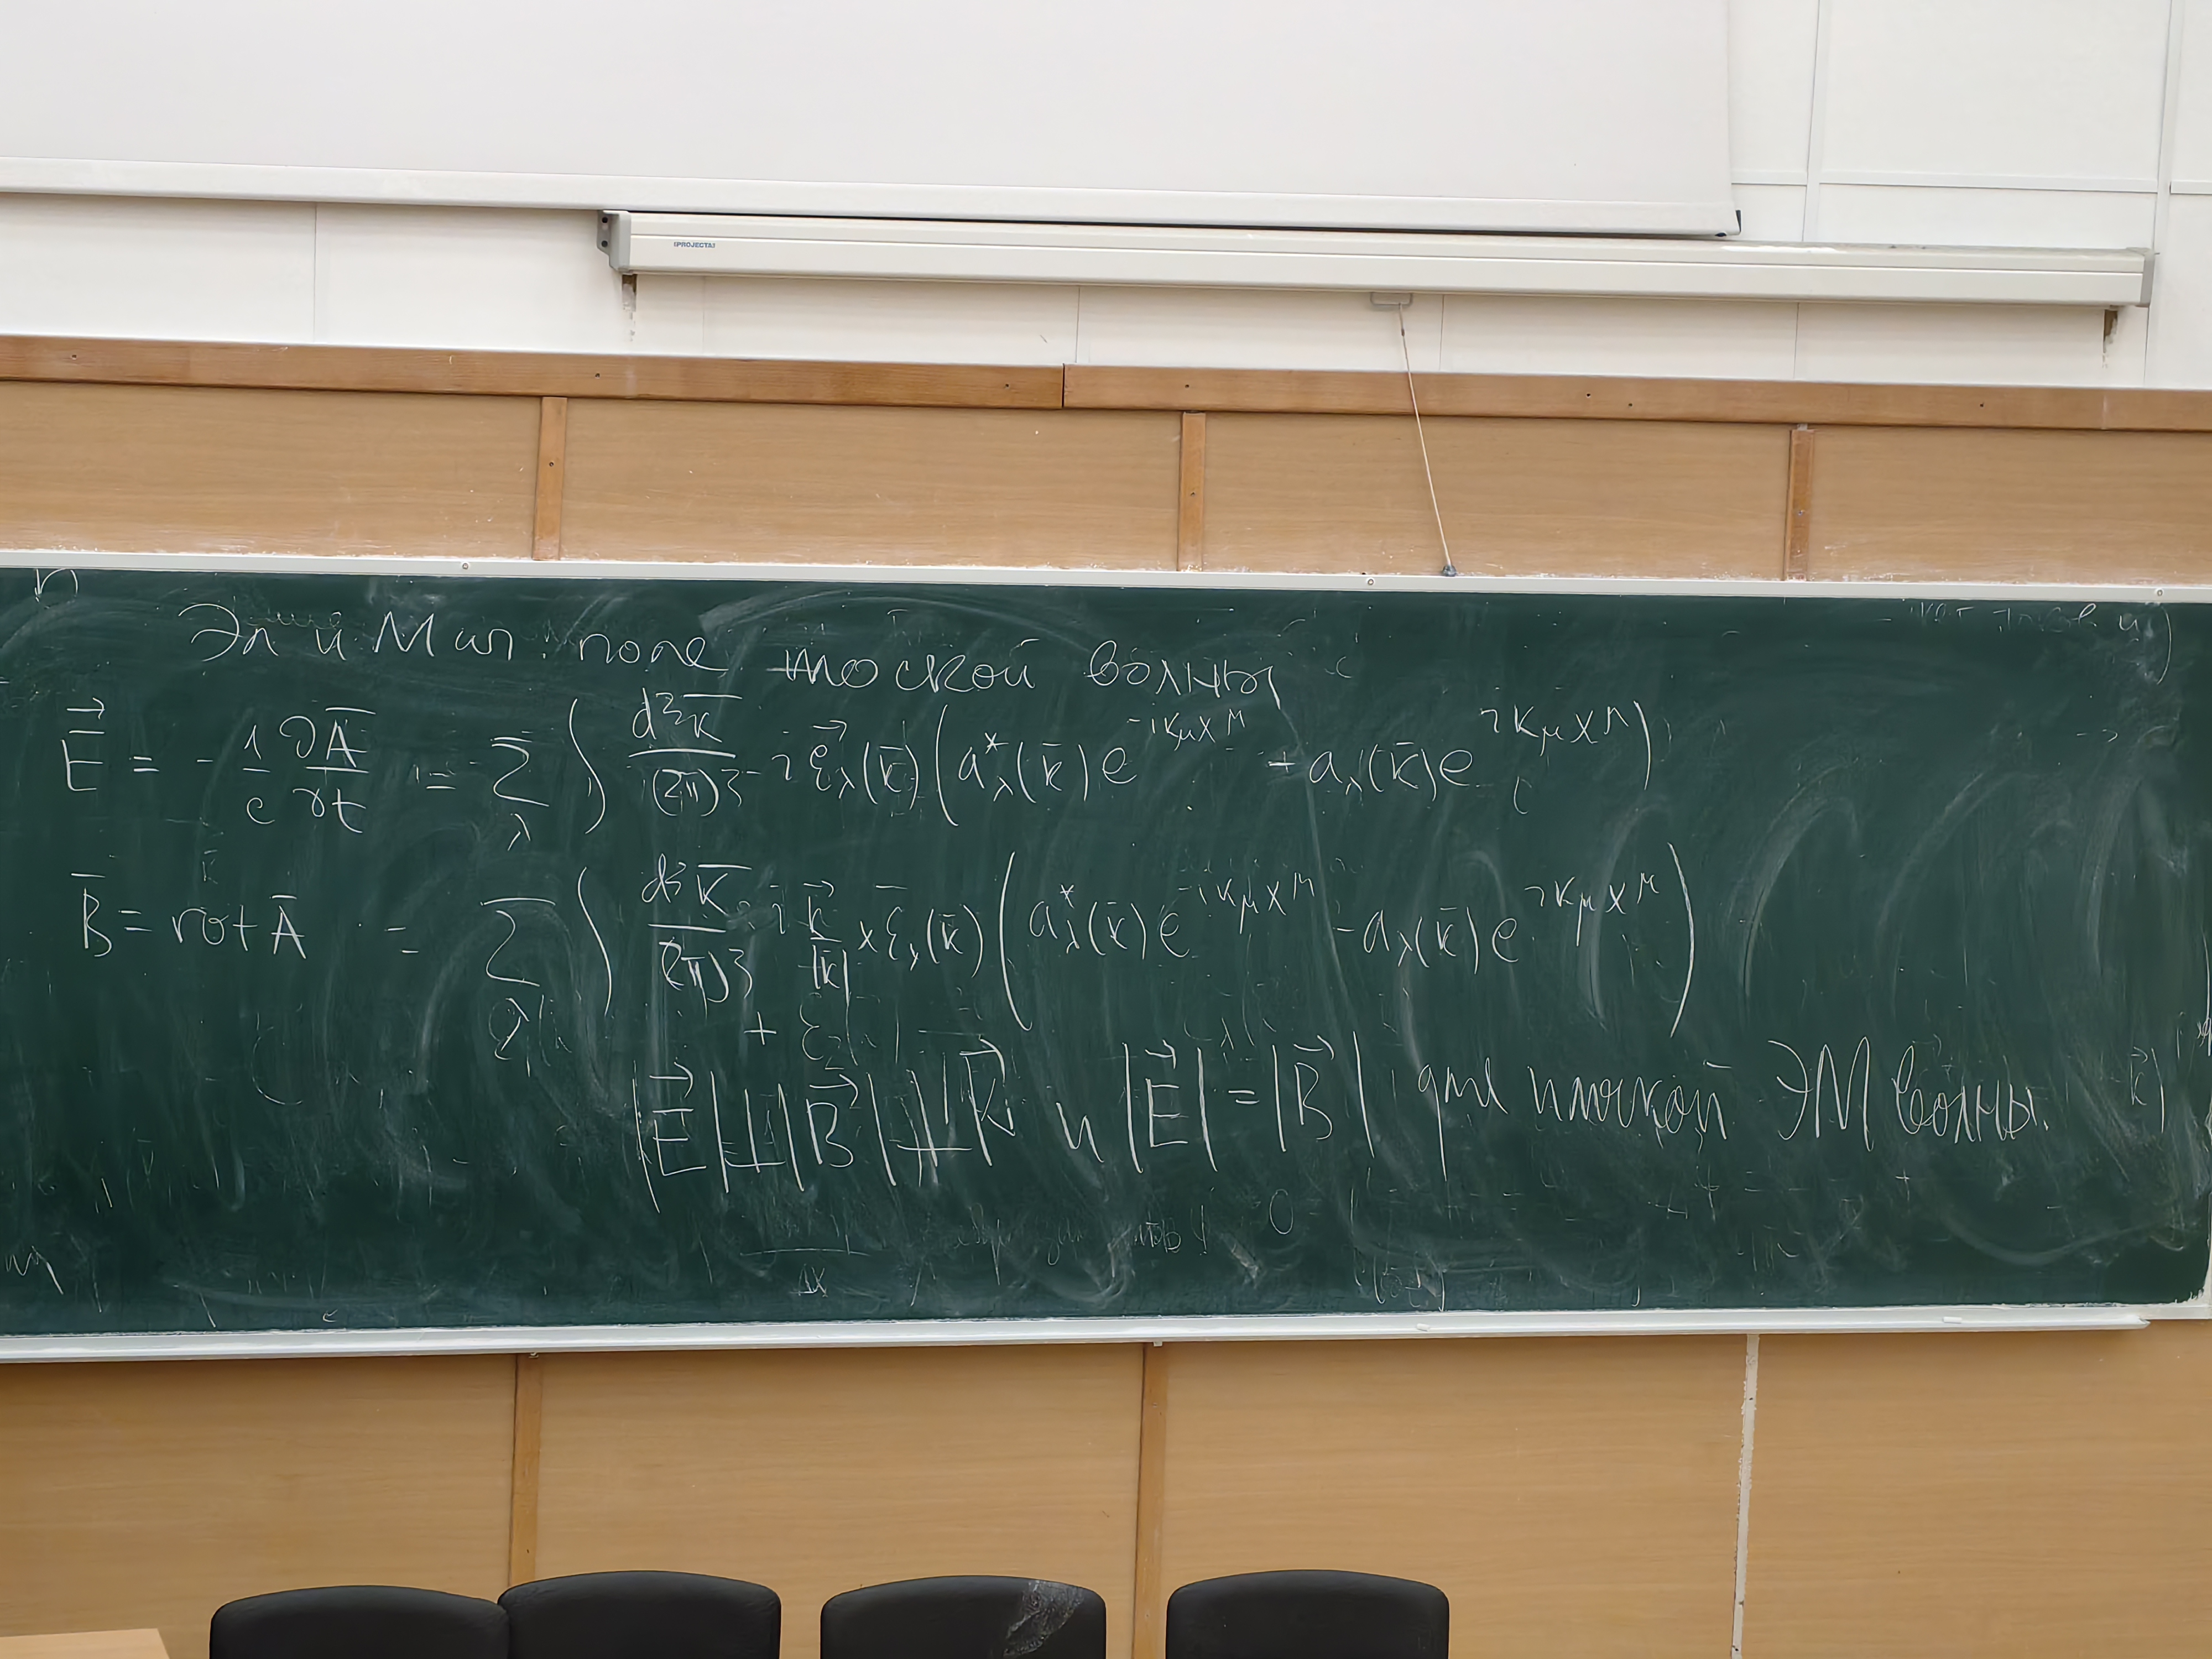 PROJECTA
Эл и Маг. поле плоской волны
$\vec{E} = -\frac{1}{c}\frac{\partial \bar{A}}{\partial t} = \sum_{\lambda} \int \frac{d^3\bar{k}}{(2\pi)^3} -i\vec{\varepsilon}_{\lambda}(\bar{k})\left(a^*_{\lambda}(\bar{k})e^{-ik_{\mu}x^{\mu}} + a_{\lambda}(\bar{k})e^{ik_{\mu}x^{\mu}}\right)$
$\bar{B} = rot \bar{A} = \sum_{\lambda} \int \frac{d^3\bar{k}}{(2\pi)^3} i\frac{\vec{k}}{|\bar{k}|} \times \bar{\varepsilon}_{\lambda}(\bar{k})\left(a^*_{\lambda}(\bar{k})e^{-ik_{\mu}x^{\mu}} - a_{\lambda}(\bar{k})e^{ik_{\mu}x^{\mu}}\right)$
$|\vec{E}| \perp |\vec{B}| \perp |\vec{k}|$ и $|\vec{E}| = |\vec{B}|$ для плоской ЭМ волны.